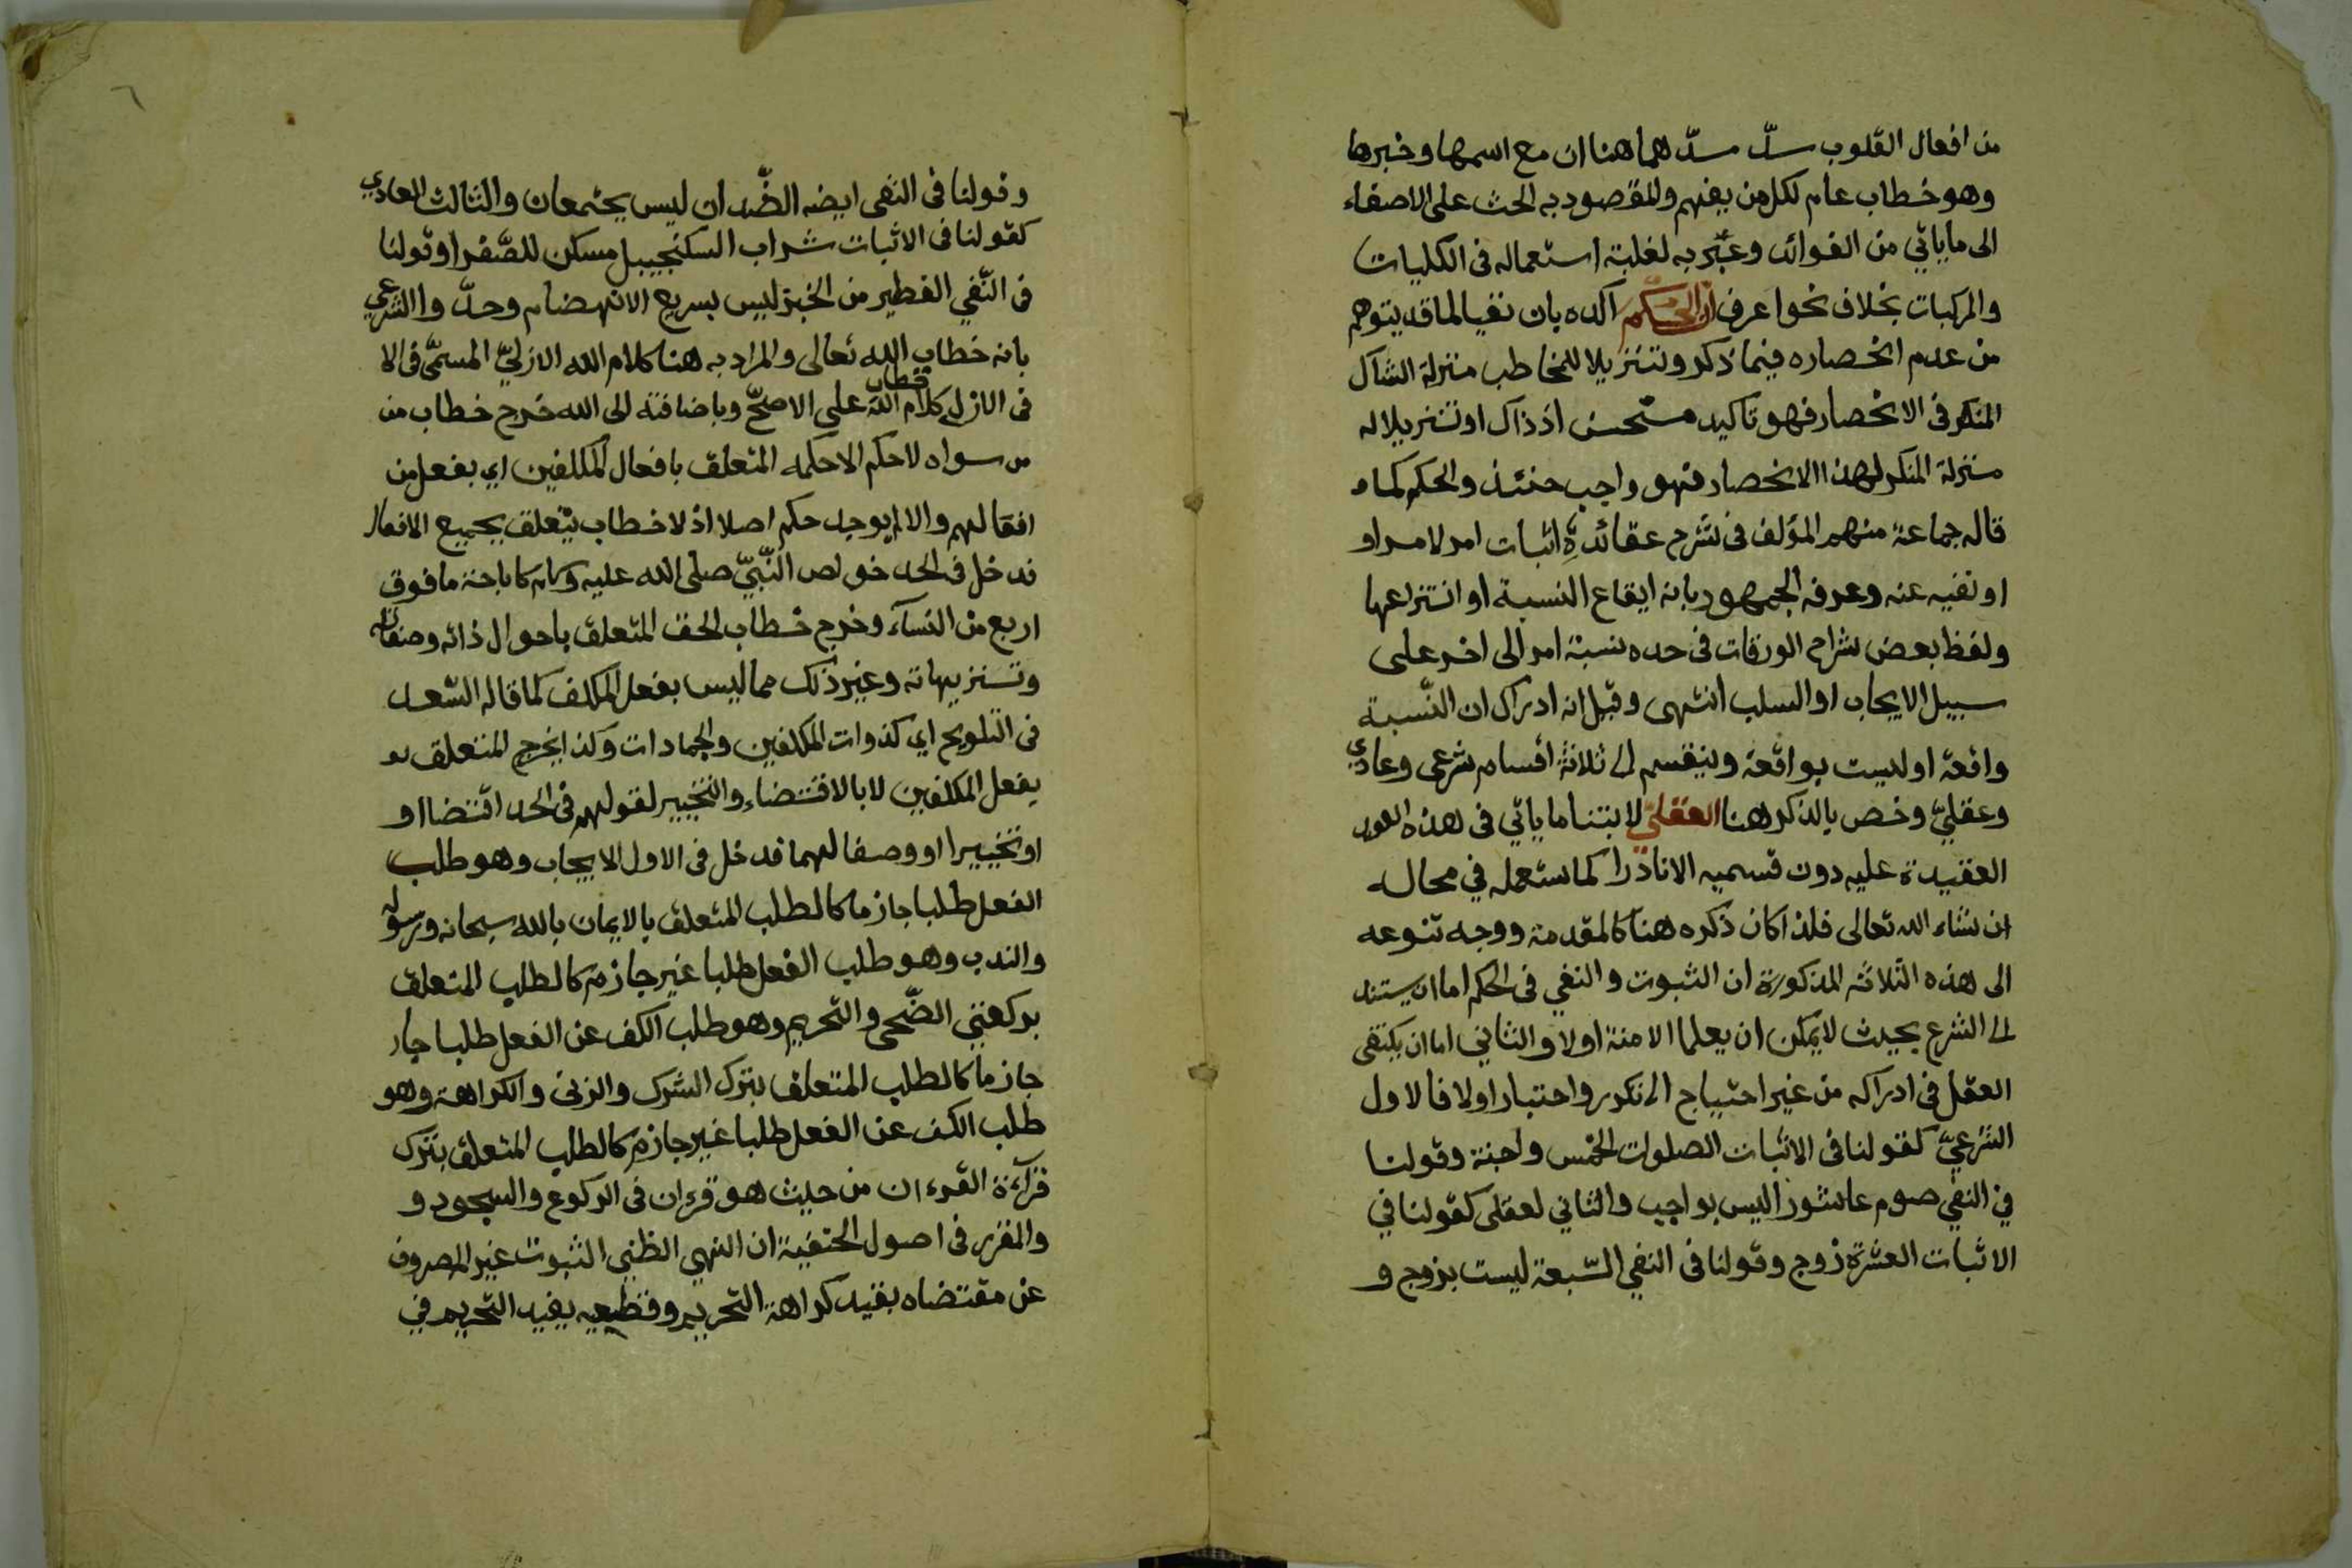 من افعال القلوب سدّ مسدّهما هنا ان مع اسمها وخبرها
وهو خطاب عام لكل من يفهم والمقصود به الحث على الاصغاء
الى ما ياتي من الفوائد وعبّر به لغلبة استعماله فى الكليات
والمركبات بخلاف نحوا عرف ان الحكم اكده بان نفيا لما قد يتوهم
من عدم انحصاره فيما ذكر وتنزيلا للمخاطب منزلة الشاك
المنكر فى الانحصار فهو تاكيد مستحسن اذ ذاك او تنزيلا له
منزلة المنكر لهذا الانحصار فهو واجب حنئذ والحكم كما
قاله جماعة منهم المؤلف فى شرح عقائده اثبات امر لامر او
او نفيه عنه وعرفه الجمهور بانه ايقاع النسبة او انتزاعها
ولفظ بعض شراح الورقات فى حده نسبة امر الى اخر على
سبيل الايجاب او السلب انتهى وقيل انه ادراك ان النّسبة
واقعة او ليست بواقعة وينقسم الى ثلاثة اقسام شرعى وعادي
وعقليّ وخص بالذكر هنا العقليّ لابتنا ما ياتي فى هذه
العقيدة عليه دون قسميه الا نادرا كما ستعمله في محال
ان شاء الله تعالى فلذا كان ذكره هنا كالمقدمة ووجه تنوعه
الى هذه الثلاثه المذكورة ان الثبوت والنفي فى الحكم اما ان يستند
الى الشرع بحيث لا يمكن ان يعلما الا منه اولا والثاني اما ان يكتفى
العقل فى ادراكه من غير احتياج الى تكرر واختبار اولا فالاول
الشرعيّ كقولنا فى الاثبات الصلوات الخمس واجبة وقولنا
في النفي صوم عاشورا ليس بواجب والثاني لعقلى كقولنا في
الاثبات العشرة زوج وقولنا فى النفي السّبعة ليست بزوج و
وقولنا فى النفى ايضه الضّدان ليس يجتمعان والثالث العادي
كقولنا فى الاثبات شراب السكنجيبل مسكن للصّفرا وقولنا
فى النّفي الفطير من الخبز ليس بسريع الانهضام وحدّوا الشرعي
بانه خطاب الله تعالى والمراد به هنا كلام الله الازليّ المسمّى فى الا
فى الازل كلام الله خطاب على الاصحّ وباضافته الى الله خرج خطاب من
من سواه لا حكم الا حكمه المتعلق بافعال المكلفين اي بفعل من
افعالهم والا لم يوجد حكم اصلا اذ لا خطاب يتعلق بجميع الافعال
فدخل فى الحد خواص النّبيّ صلى الله عليه وسلم كاباحة ما فوق
اربع من النسآء وخرج خطاب الحق المتعلق باحوال ذاته وصفاته
وتنزيهاته وغير ذلك مما ليس بفعل المكلف كما قاله السّعد
فى التلويح اي كذوات المكلفين والجمادات وكذا يخرج المتعلق
بفعل المكلفين لا بالاقتضاء والتخيير لقولهم فى الحد اقتضا او
او تخييرا او وصفا لهما فدخل فى الاول الايجاب وهو طلب
الفعل طلبا جازما كالطلب المتعلق بالايمان بالله سبحانه ورسوله
والندب وهو طلب الفعل طلبا غير جازم كالطلب المتعلق
بركعتي الضّحى والتحريم وهو طلب الكف عن الفعل طلبا جا
جازما كالطلب المتعلق بترك الشرك والزنى والكراهة وهو
طلب الكف عن الفعل طلبا غير جازم كالطلب المتعلق بترك
قرآءة القرءان من حيث هو قرءان فى الركوع والسجود و
والمقرر فى اصول الحنفية ان النهي الظني الثبوت غير المصروف
عن مقتضاه يفيد كراهة التحريم وقطعيه يفيد التحريم في